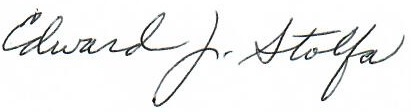 Edward J. Stolfa